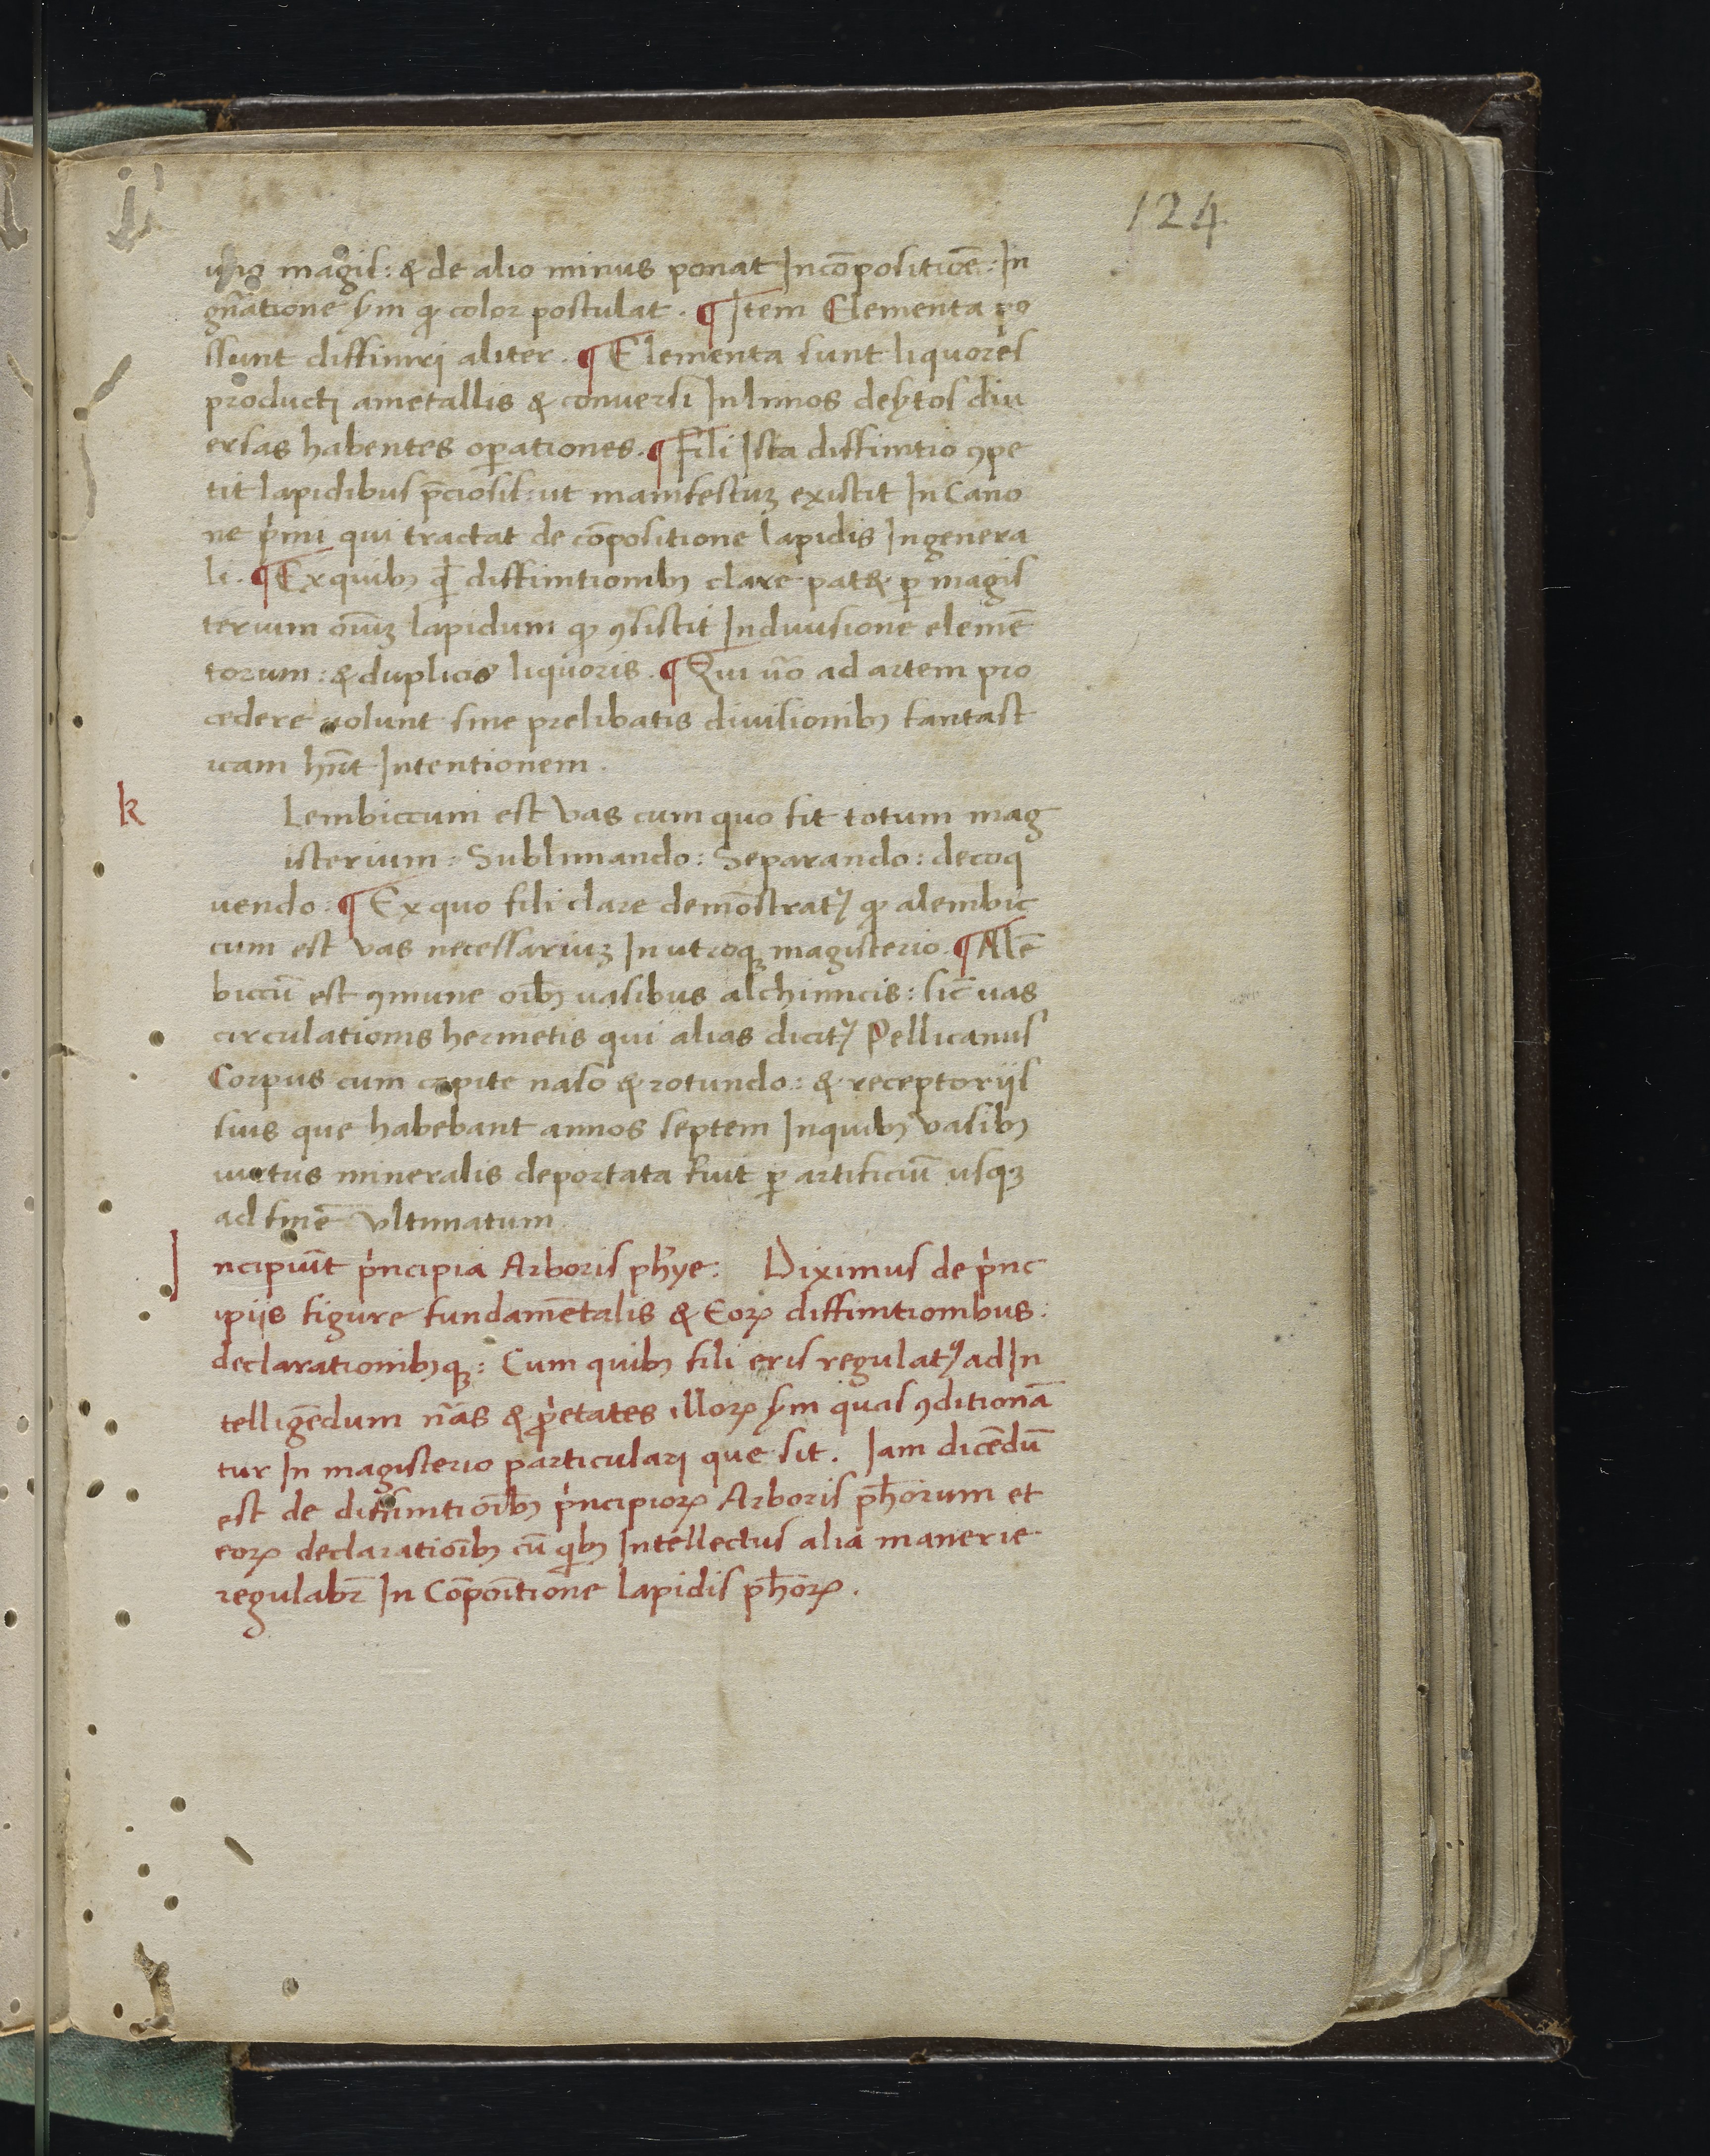 124
uno magis: & de alio minus ponat Incōpositiōe: In
gn̄atione sm̄ ꝙ color postulat. ¶ Item Elementa po
ssunt diffiniri aliter. ¶ Elementa sunt liquores
producti ametallis & conuersi Inlimos debitos diu
ersas habentes oꝑationes. ¶ Fili Ista diffinitio ꝯpe
tit lapidibus p̄ciosis: ut manifestuꝫ existit In Cano
ne primi qui tractat de cōpositione lapidis Ingenera
li. ¶ Exquibꝫ diffinitionibꝫ clare pat& ꝑ magis
terium oīuꝫ lapidum ꝙ ꝯsistit Indiuisione elemē
torum: & duplicis liquoris. ¶ Qui ūo ad artem pro
cedere uolunt sine prelibatis diuisionibꝫ fantast
icam hn̄t Intentionem.
k
Lembiccum est vas cum quo fit totum mag
isterium: Sublimando: Separando: decoq
uendo: ¶ Ex quo fili clare demōstratꝰ ꝙ alembic
cum est vas necessariuꝫ In utroqꝫ magisterio. ¶ Alē
biccū est ꝯmune oībꝫ uasibus alchimicis: sic̄ uas
circulationis hermetis qui alias dicitꝰ Pellicanus
Corpus cum capite naso & rotundo: & receptorijs
suis que habebant annos septem Inquibꝫ vasibꝫ
uirtus mineralis deportata fuit ꝑ artificiū usqꝫ
ad finē vltimatum
I
ncipiūt principia Arboris ph̄ye: Diximus de princ
ipijs figure fundamētalis & Eoꝝ diffinitionibus:
declarationibꝫqꝫ: Cum quibꝫ fili eris regulatꝰ adIn
telligēdum n̄as & ꝓprietates illoꝝ sm̄ quas ꝯditionā
tur In magisterio particulari que sit. Iam dicēdū
est de diffinitiōibꝫ principioꝝ Arboris ph̄orum et
eoꝝ declaratiōibꝫ cū qibꝫ Intellectus alia manerie
regulabr̄ In Cōpoītione lapidis ph̄oꝝ.